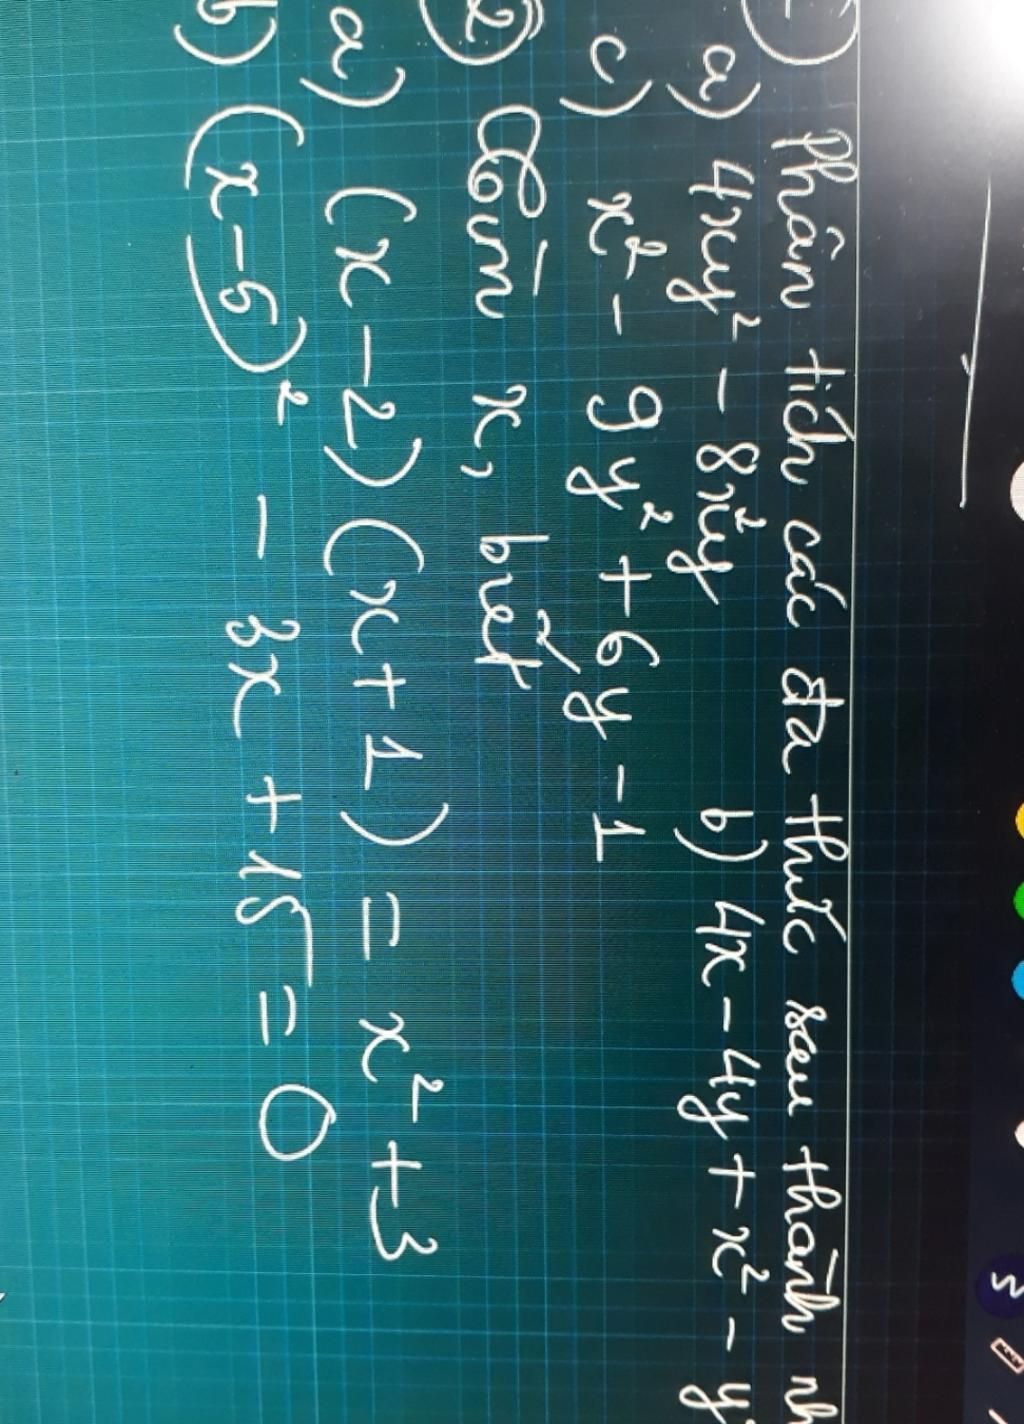 Phân tích các đa thức sau thành nh
a) 4xy² - 8x²y b) 4x - 4y + x² - y
c) x² - 9y² + 6y - 1
2) Tìm x, biết
a) (x - 2)(x + 1) = x² + 3
b) (x - 5)² - 3x + 15 = 0